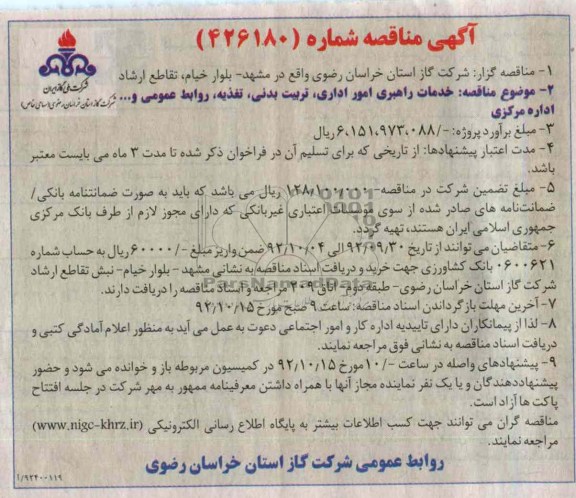 آگهی مناقصه شماره (۴۲۶۱۸۰)
شرکت ملی گاز ایران
شرکت گاز استان خراسان رضوی (سهامی خاص)
۱- مناقصه گزار: شرکت گاز استان خراسان رضوی واقع در مشهد- بلوار خیام، تقاطع ارشاد
۲- موضوع مناقصه: خدمات راهبری امور اداری، تربیت بدنی، تغذیه، روابط عمومی و...
اداره مرکزی
۳- مبلغ برآورد پروژه: -/۶،۱۵۱،۹۷۳،۰۸۸ ریال
۴- مدت اعتبار پیشنهادها: از تاریخی که برای تسلیم آن در فراخوان ذکر شده تا مدت ۳ ماه می بایست معتبر
باشد.
۵- مبلغ تضمین شرکت در مناقصه- ۱۲۸،۱۰۰،۰۰۰ ریال می باشد که باید به صورت ضمانتنامه بانکی/
ضمانت‌نامه های صادر شده از سوی موسسات اعتباری غیربانکی که دارای مجوز لازم از طرف بانک مرکزی
جمهوری اسلامی ایران هستند، تهیه گردد.
۶- متقاضیان می توانند از تاریخ ۹۲/۰۹/۳۰ الی ۹۲/۱۰/۰۴ ضمن واریز مبلغ -/۶۰۰۰۰ ریال به حساب شماره
۰۶۰۰۶۲۱ بانک کشاورزی جهت خرید و دریافت اسناد مناقصه به نشانی مشهد - بلوار خیام- نبش تقاطع ارشاد
شرکت گاز استان خراسان رضوی- طبقه دوم- اتاق ۲۰۹ مراجعه و اسناد مناقصه را دریافت دارند.
۷- آخرین مهلت بازگرداندن اسناد مناقصه: ساعت ۹ صبح مورخ ۹۲/۱۰/۱۵
۸- لذا از پیمانکاران دارای تاییدیه اداره کار و امور اجتماعی دعوت به عمل می آید به منظور اعلام آمادگی کتبی و
دریافت اسناد مناقصه به نشانی فوق مراجعه نمایند.
۹- پیشنهادهای واصله در ساعت -/۱۰ مورخ ۹۲/۱۰/۱۵ در کمیسیون مربوطه باز و خوانده می شود و حضور
پیشنهاددهندگان و یا یک نفر نماینده مجاز آنها با همراه داشتن معرفینامه ممهور به مهر شرکت در جلسه افتتاح
پاکت ها آزاد است.
مناقصه گران می توانند جهت کسب اطلاعات بیشتر به پایگاه اطلاع رسانی الکترونیکی (www.nigc-khrz.ir)
مراجعه نمایند.
روابط عمومی شرکت گاز استان خراسان رضوی
۹۲۴۰۰۱۱۹/آ